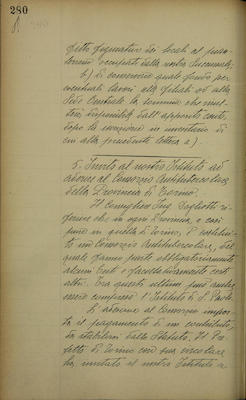 280
fitto figurativo dei locali al piano
terreno occupati dalla nostra Succursale;
b) di conservare quale fondo per
eventuali lavori alle filiali od alla
Sede Centrale la somma che risul-
terà disponibile dall'apposito conto
dopo la iscrizione in inventario di
cui alla precedente lettera a).
5. Invito al nostro Istituto ad
aderire al Consorzio Antitubercolare
della Provincia di Torino.
Il Consigliere Ing. Pogliotti ri-
ferisce che in ogni Provincia, e così
pure in quella di Torino, è costituito
un Consorzio Antitubercolare, del
quale fanno parte obbligatoriamente
alcuni Enti e facoltativamente certi
altri. Tra questi ultimi può anche
essere compreso l'Istituto di S. Paolo.
L'adesione al Consorzio impor-
ta il pagamento di un contributo,
da stabilirsi dallo Statuto. Il Pre-
fetto di Torino con sua circolare
ha invitato il nostro Istituto a